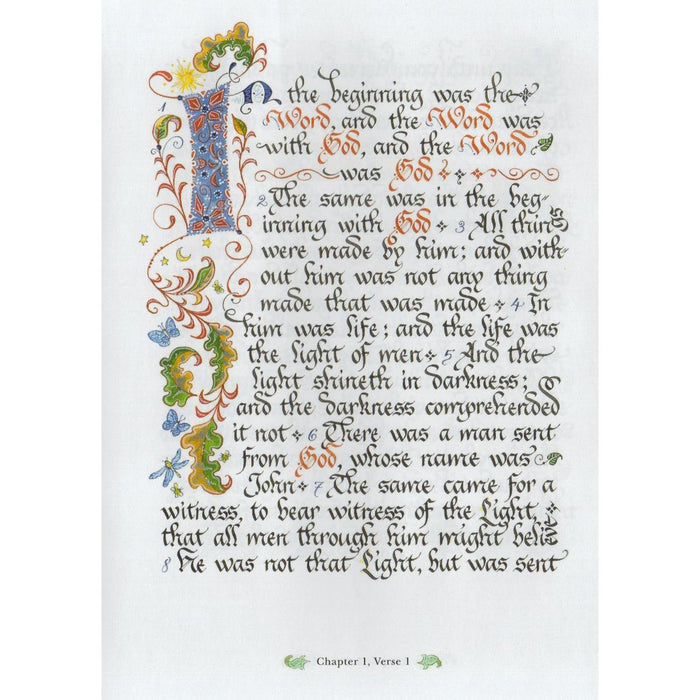 1 In the beginning was the
Word, and the Word was
with God, and the Word
was God
2 The same was in the beg-
inning with God 3 All things
were made by him; and with-
out him was not any thing
made that was made 4 In
him was life; and the life was
the light of men 5 And the
light shineth in darkness;
and the darkness comprehended
it not 6 There was a man sent
from God, whose name was
John 7 The same came for a
witness, to bear witness of the Light,
that all men through him might believe
8 He was not that Light, but was sent
Chapter 1, Verse 1